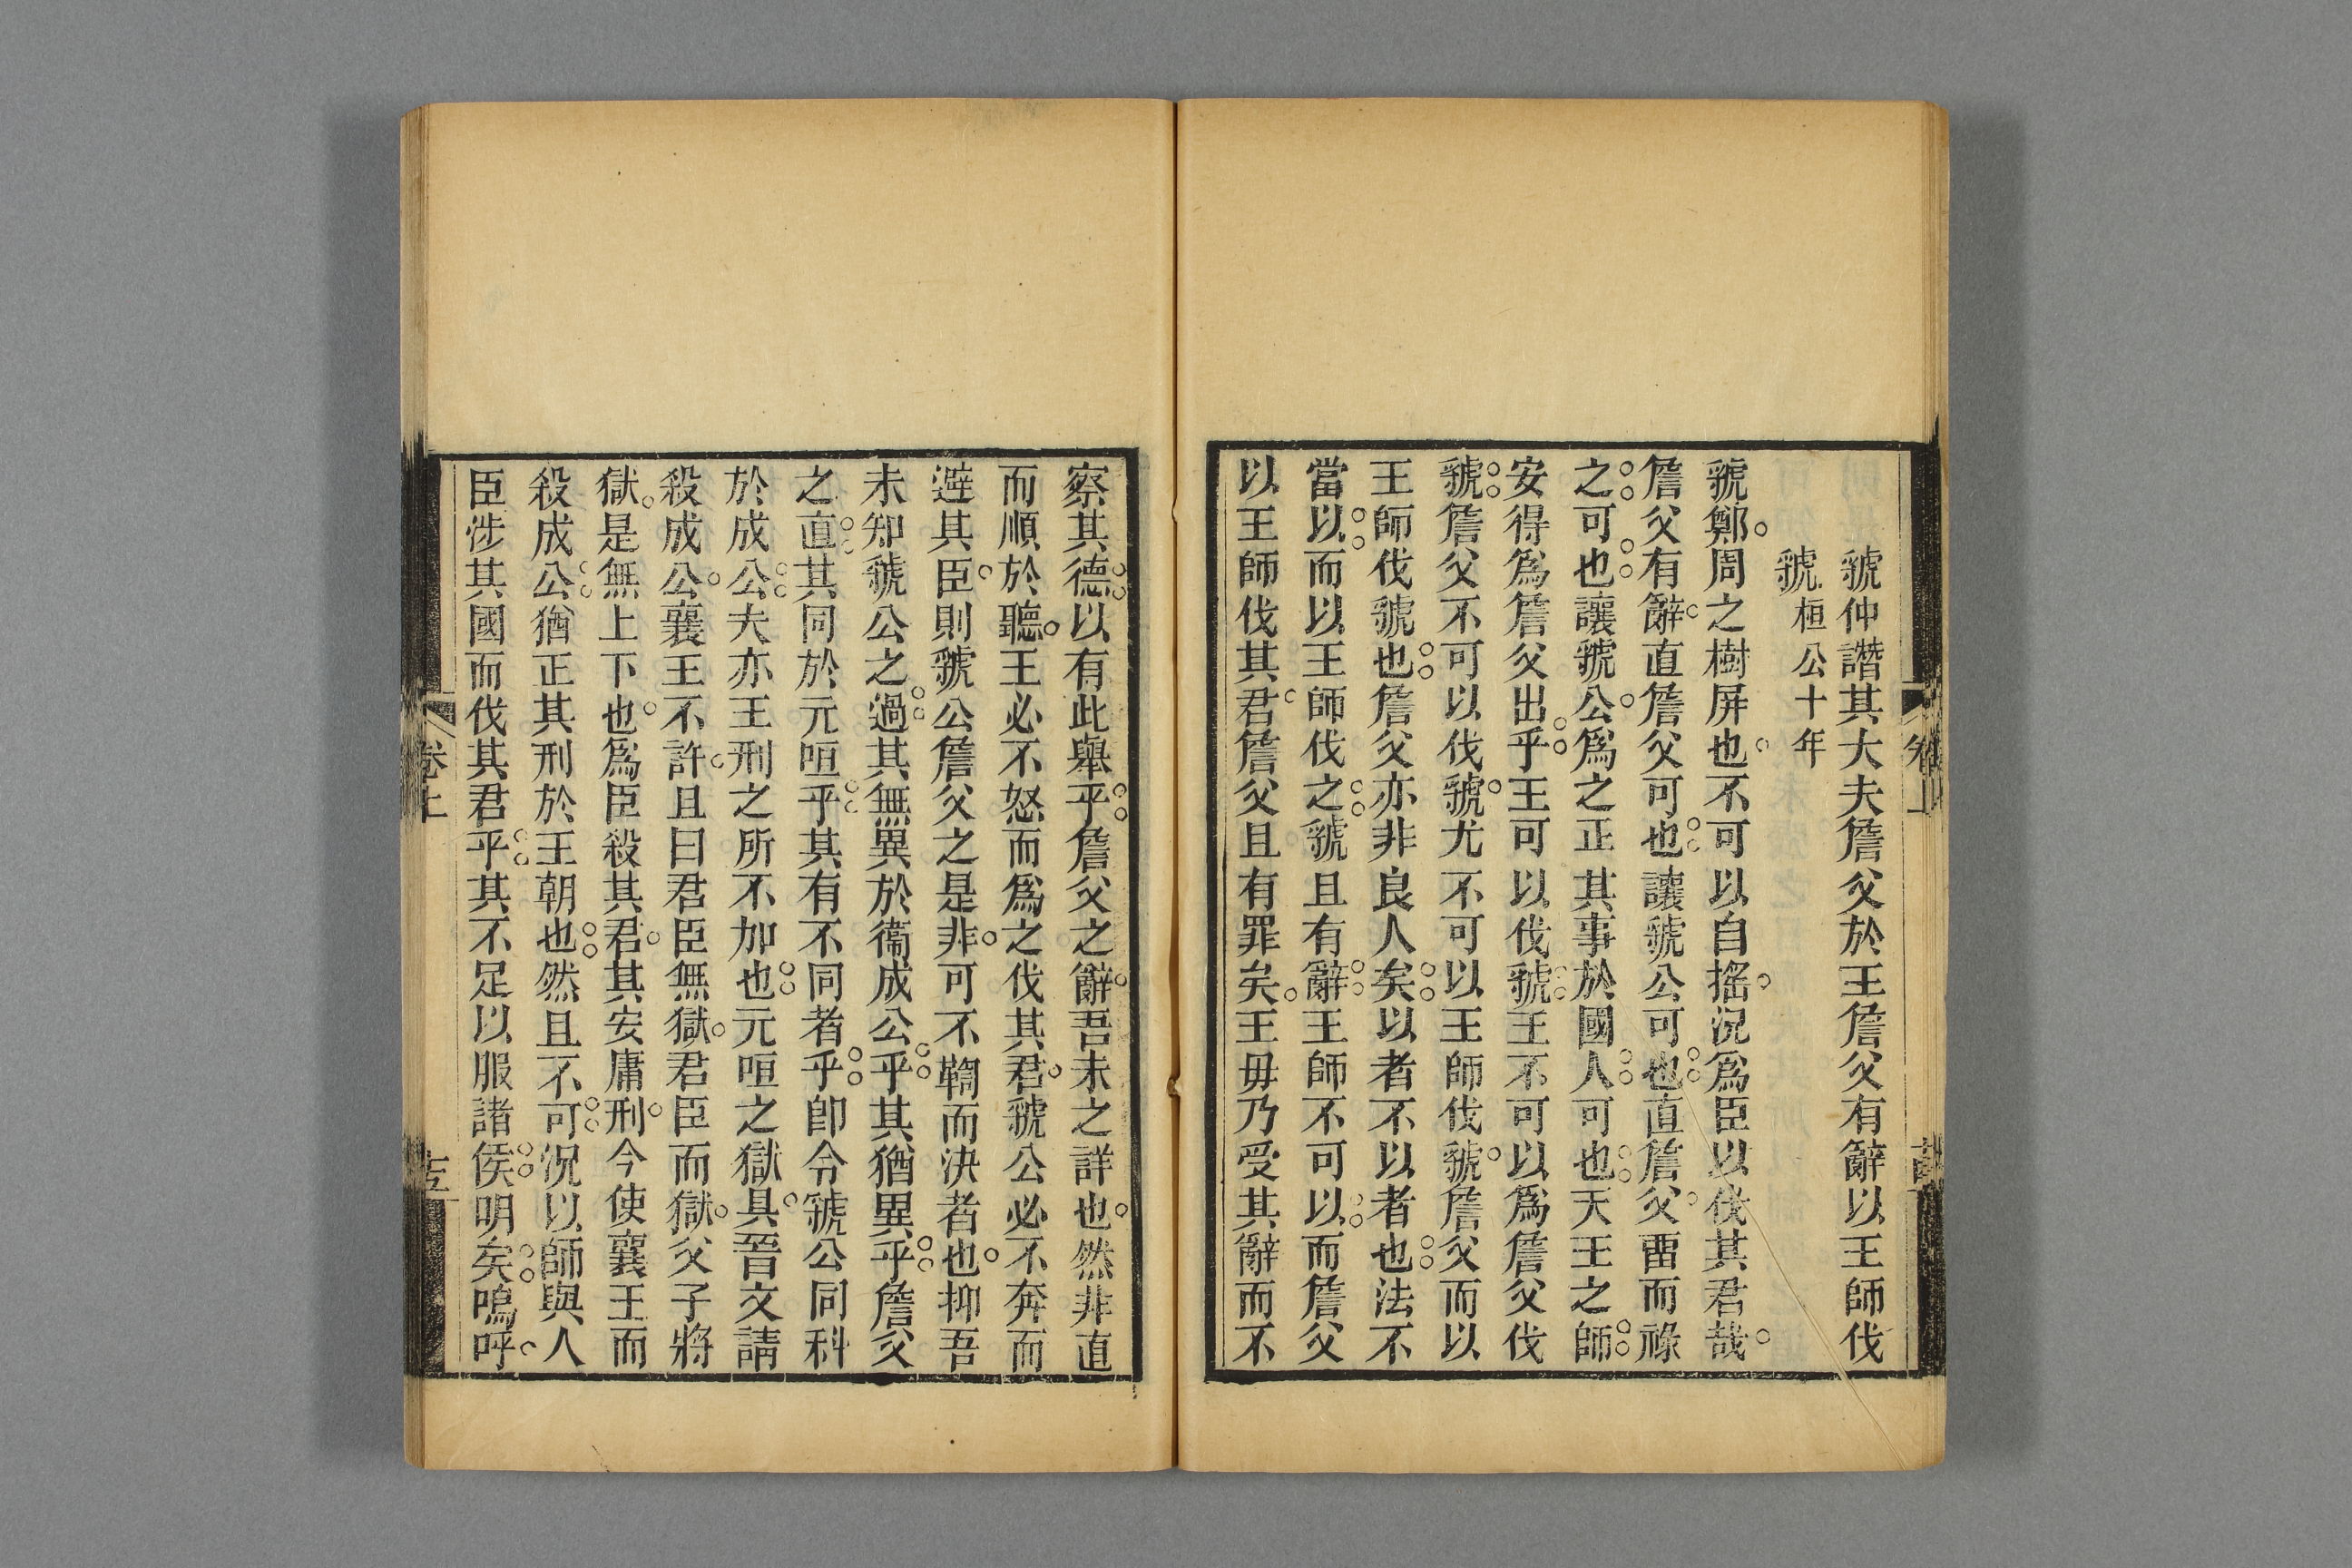 虢仲譖其大夫詹父於王詹父有辭以王師伐
虢桓公十年
虢鄭周之樹屏也不可以自搖況爲臣以伐其君哉
詹父有辭直詹父可也讓虢公可也直詹父畱而祿
之可也讓虢公爲之正其事於國人可也天王之師
安得爲詹父出乎王可以伐虢王不可以爲詹父伐
虢詹父不可以伐虢尤不可以王師伐虢詹父而以
王師伐虢也詹父亦非良人矣以者不以者也法不
當以而以王師伐之虢且有辭王師不可以而詹父
以王師伐其君詹父且有罪矣王毋乃受其辭而不
察其德以有此舉乎詹父之辭吾未之詳也然非直
而順於聽王必不怒而爲之伐其君虢公必不奔而
避其臣則虢公詹父之是非可不鞫而決者也抑吾
未知虢公之過其無異於衞成公乎其猶異乎詹父
之直其同於元咺乎其有不同者乎卽令虢公同科
於成公夫亦王刑之所不加也元咺之獄具晉文請
殺成公襄王不許且曰君臣無獄君臣而獄父子將
獄是無上下也爲臣殺其君其安庸刑今使襄王而
殺成公猶正其刑於王朝也然且不可況以師與人
臣涉其國而伐其君乎其不足以服諸侯明矣嗚呼
卷上
卷上